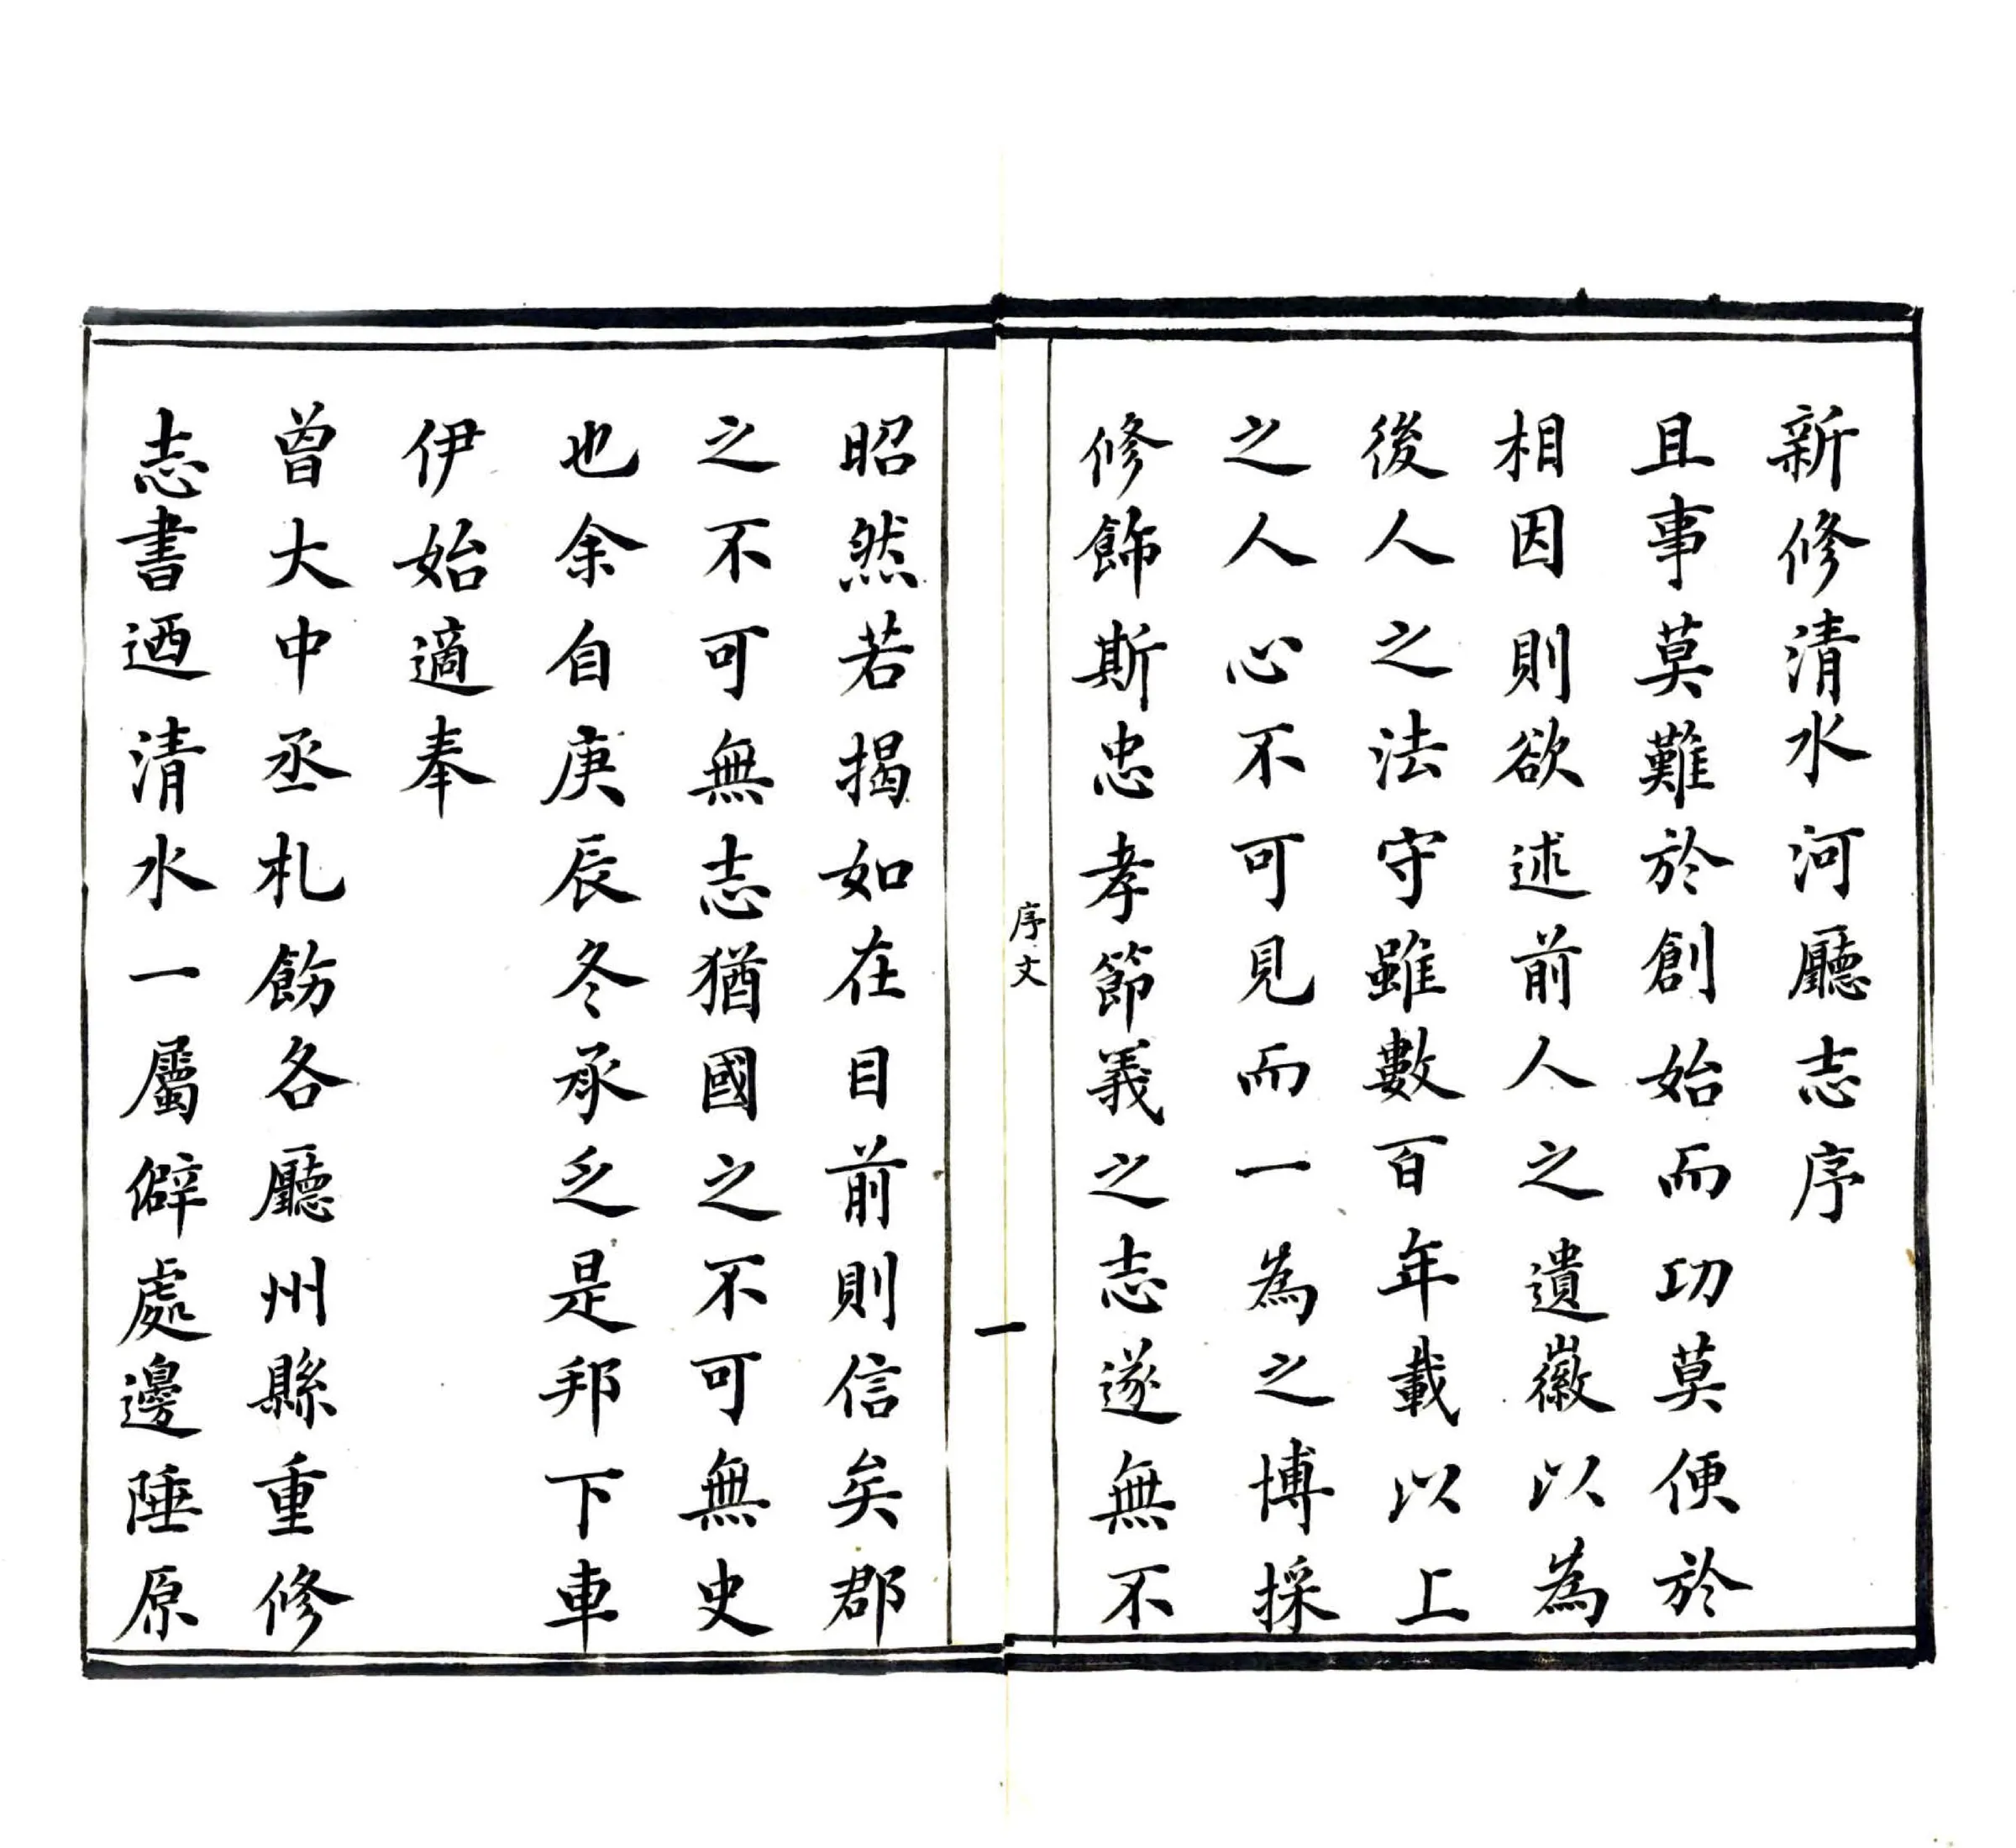 新修清水河廳志序
且事莫難於創始而功莫便於
相因則欲述前人之遺徽以為
後人之法守雖數百年載以上
之人心不可見而一為之博採
修飾斯忠孝節義之志遂無不
序文
一
昭然若揭如在目前則信矣郡
之不可無志猶國之不可無史
也余自庚辰冬承乏是邦下車
伊始適奉
曾大中丞札飭各廳州縣重修
志書迺清水一屬僻處邊陲原